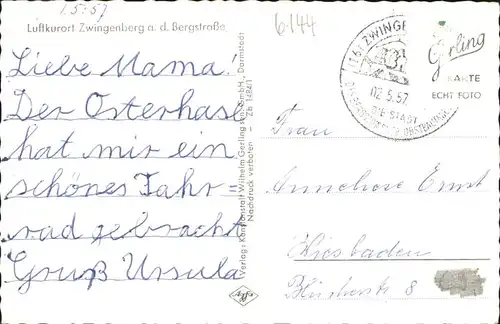 1.5.57
6144
Luftkurort Zwingenberg a. d. Bergstraße
Liebe Mama!
Der Osterhase
hat mir ein
schönes Fahr=
rad gebracht
Gruß Ursula
Verlag: Kunstanstalt Wilhelm Gerling GmbH., Darmstadt
Nachdruck verboten
(16) ZWINGEN
02.5.57
DIE STADT
Gerling
KARTE
ECHT FOTO
Frau
Annelore Ernst
Wiesbaden
8